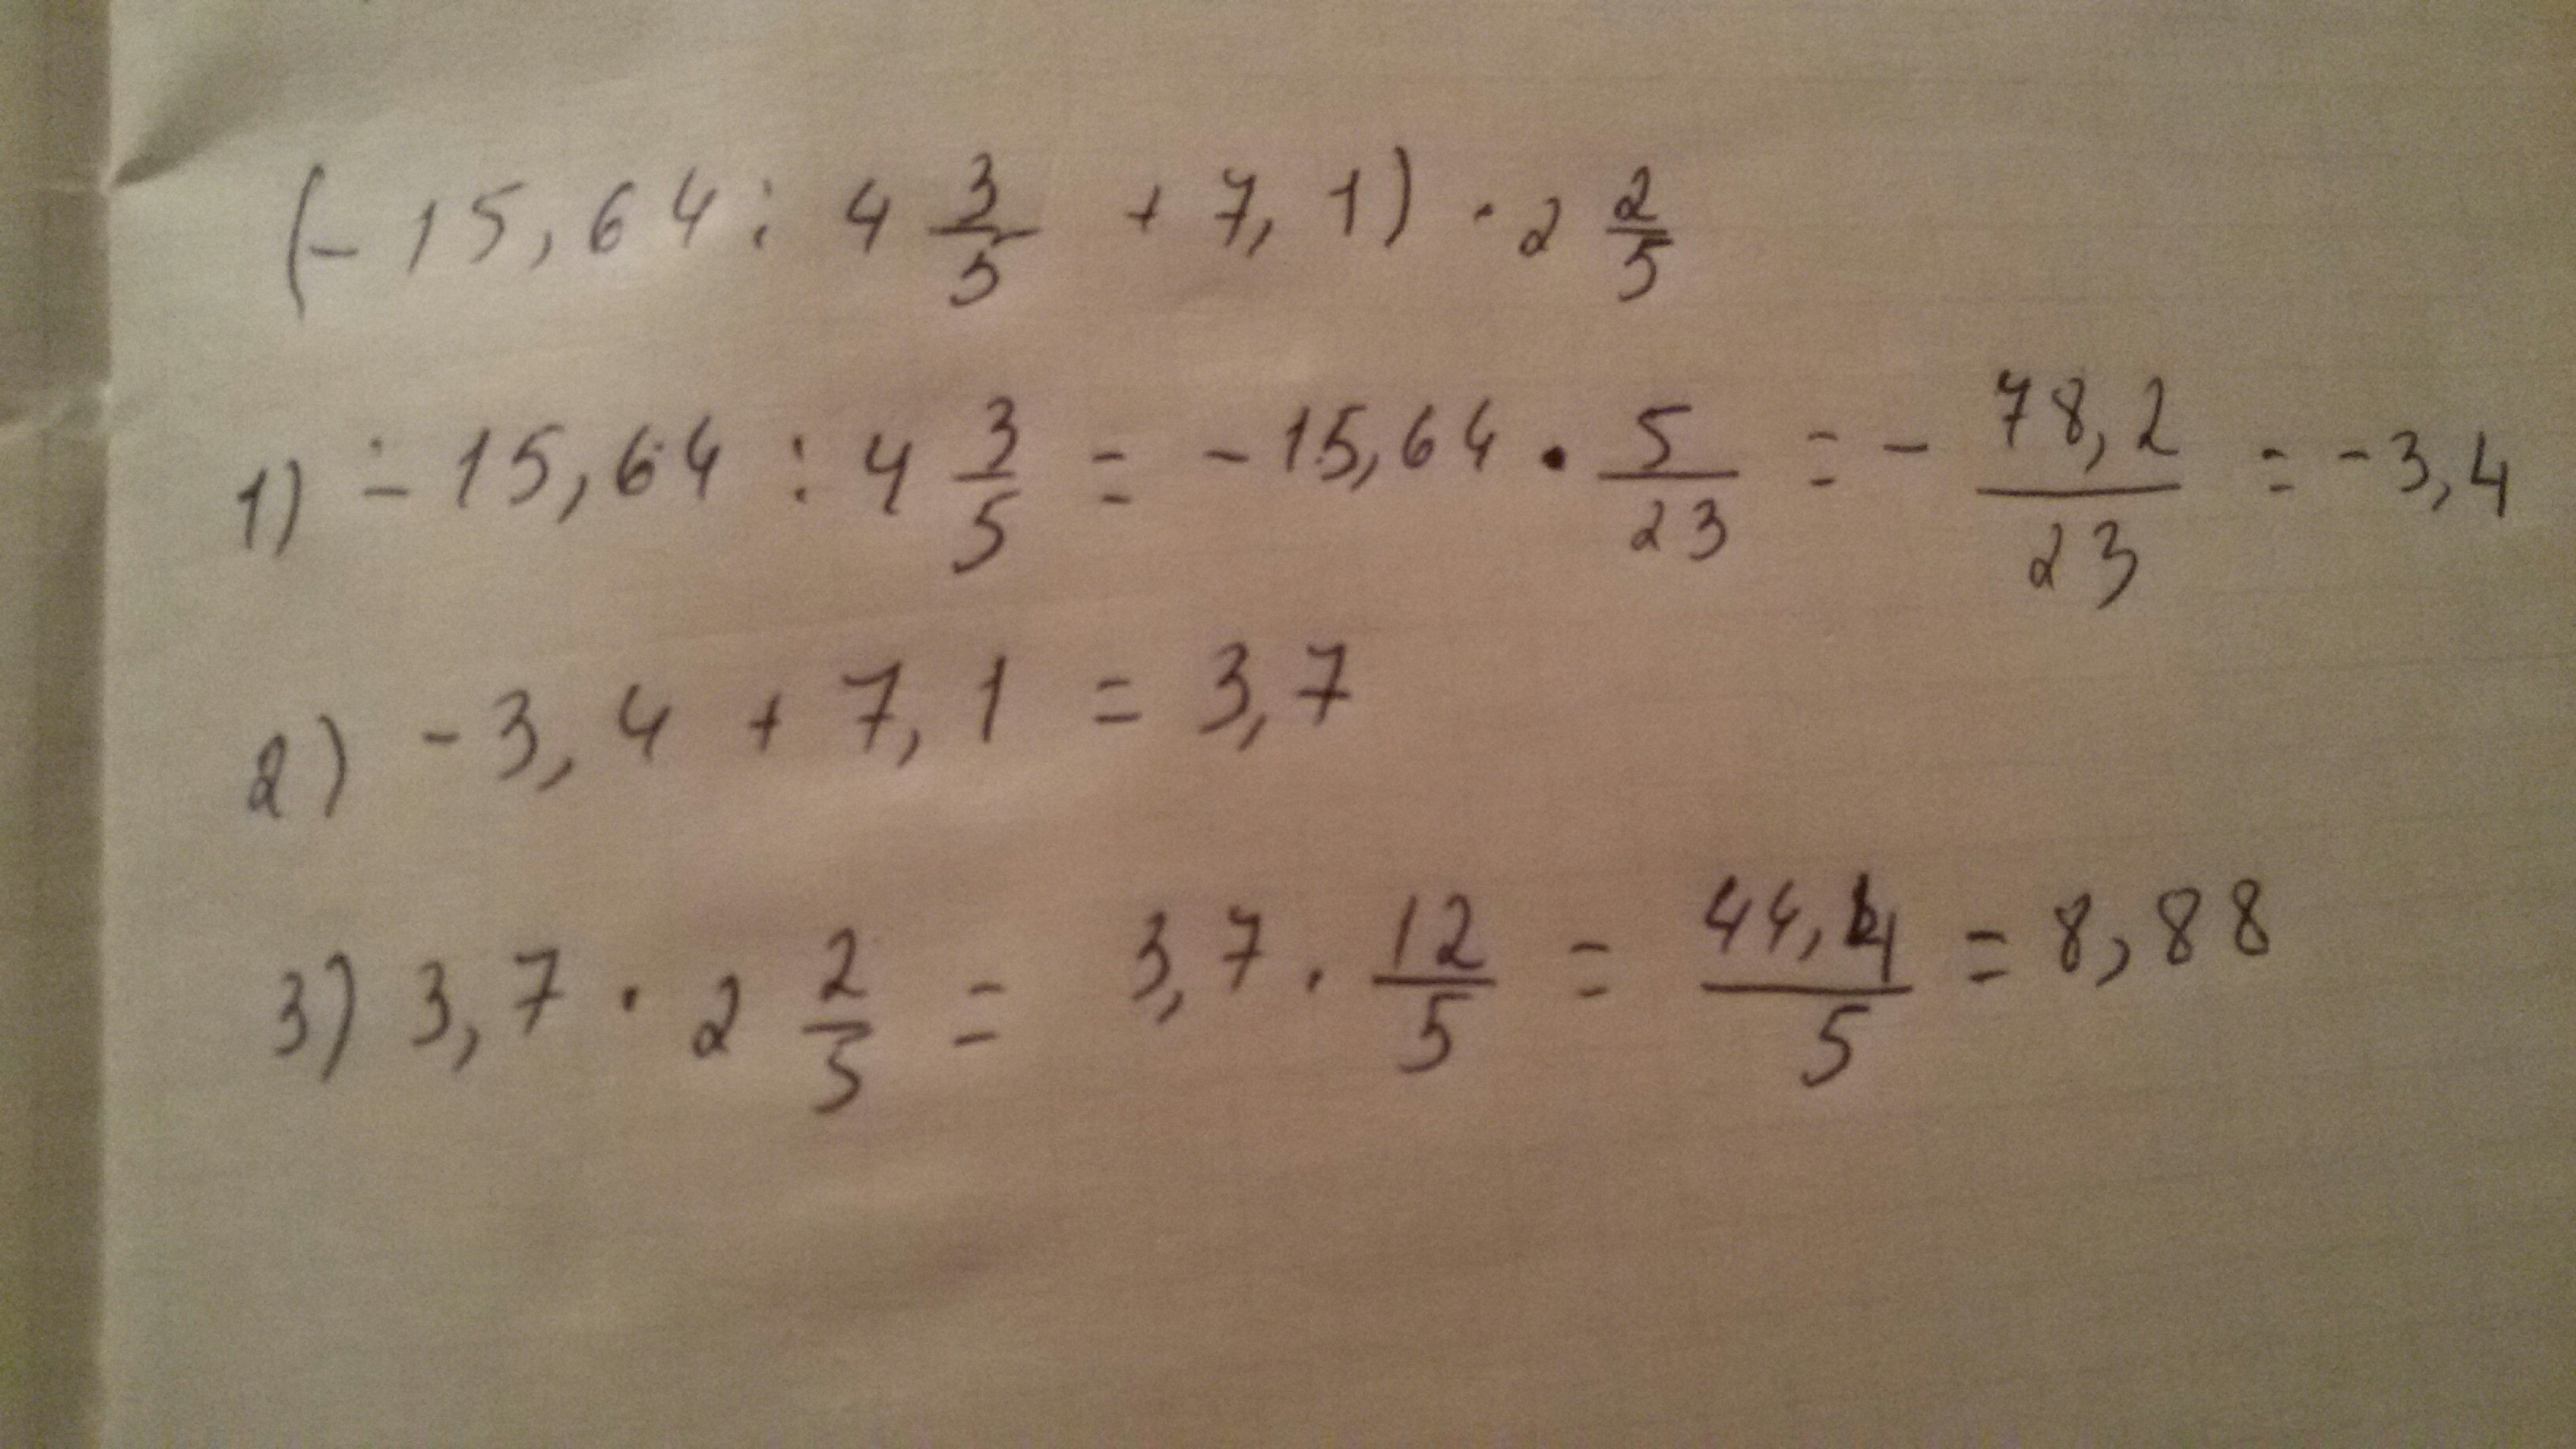 (- 15,64 : 4 3/5 + 7,1) · 2 2/5
1) - 15,64 : 4 3/5 = - 15,64 · 5/23 = - 78,2/23 = - 3,4
2) - 3,4 + 7,1 = 3,7
3) 3,7 · 2 2/5 = 3,7 · 12/5 = 44,4/5 = 8,88